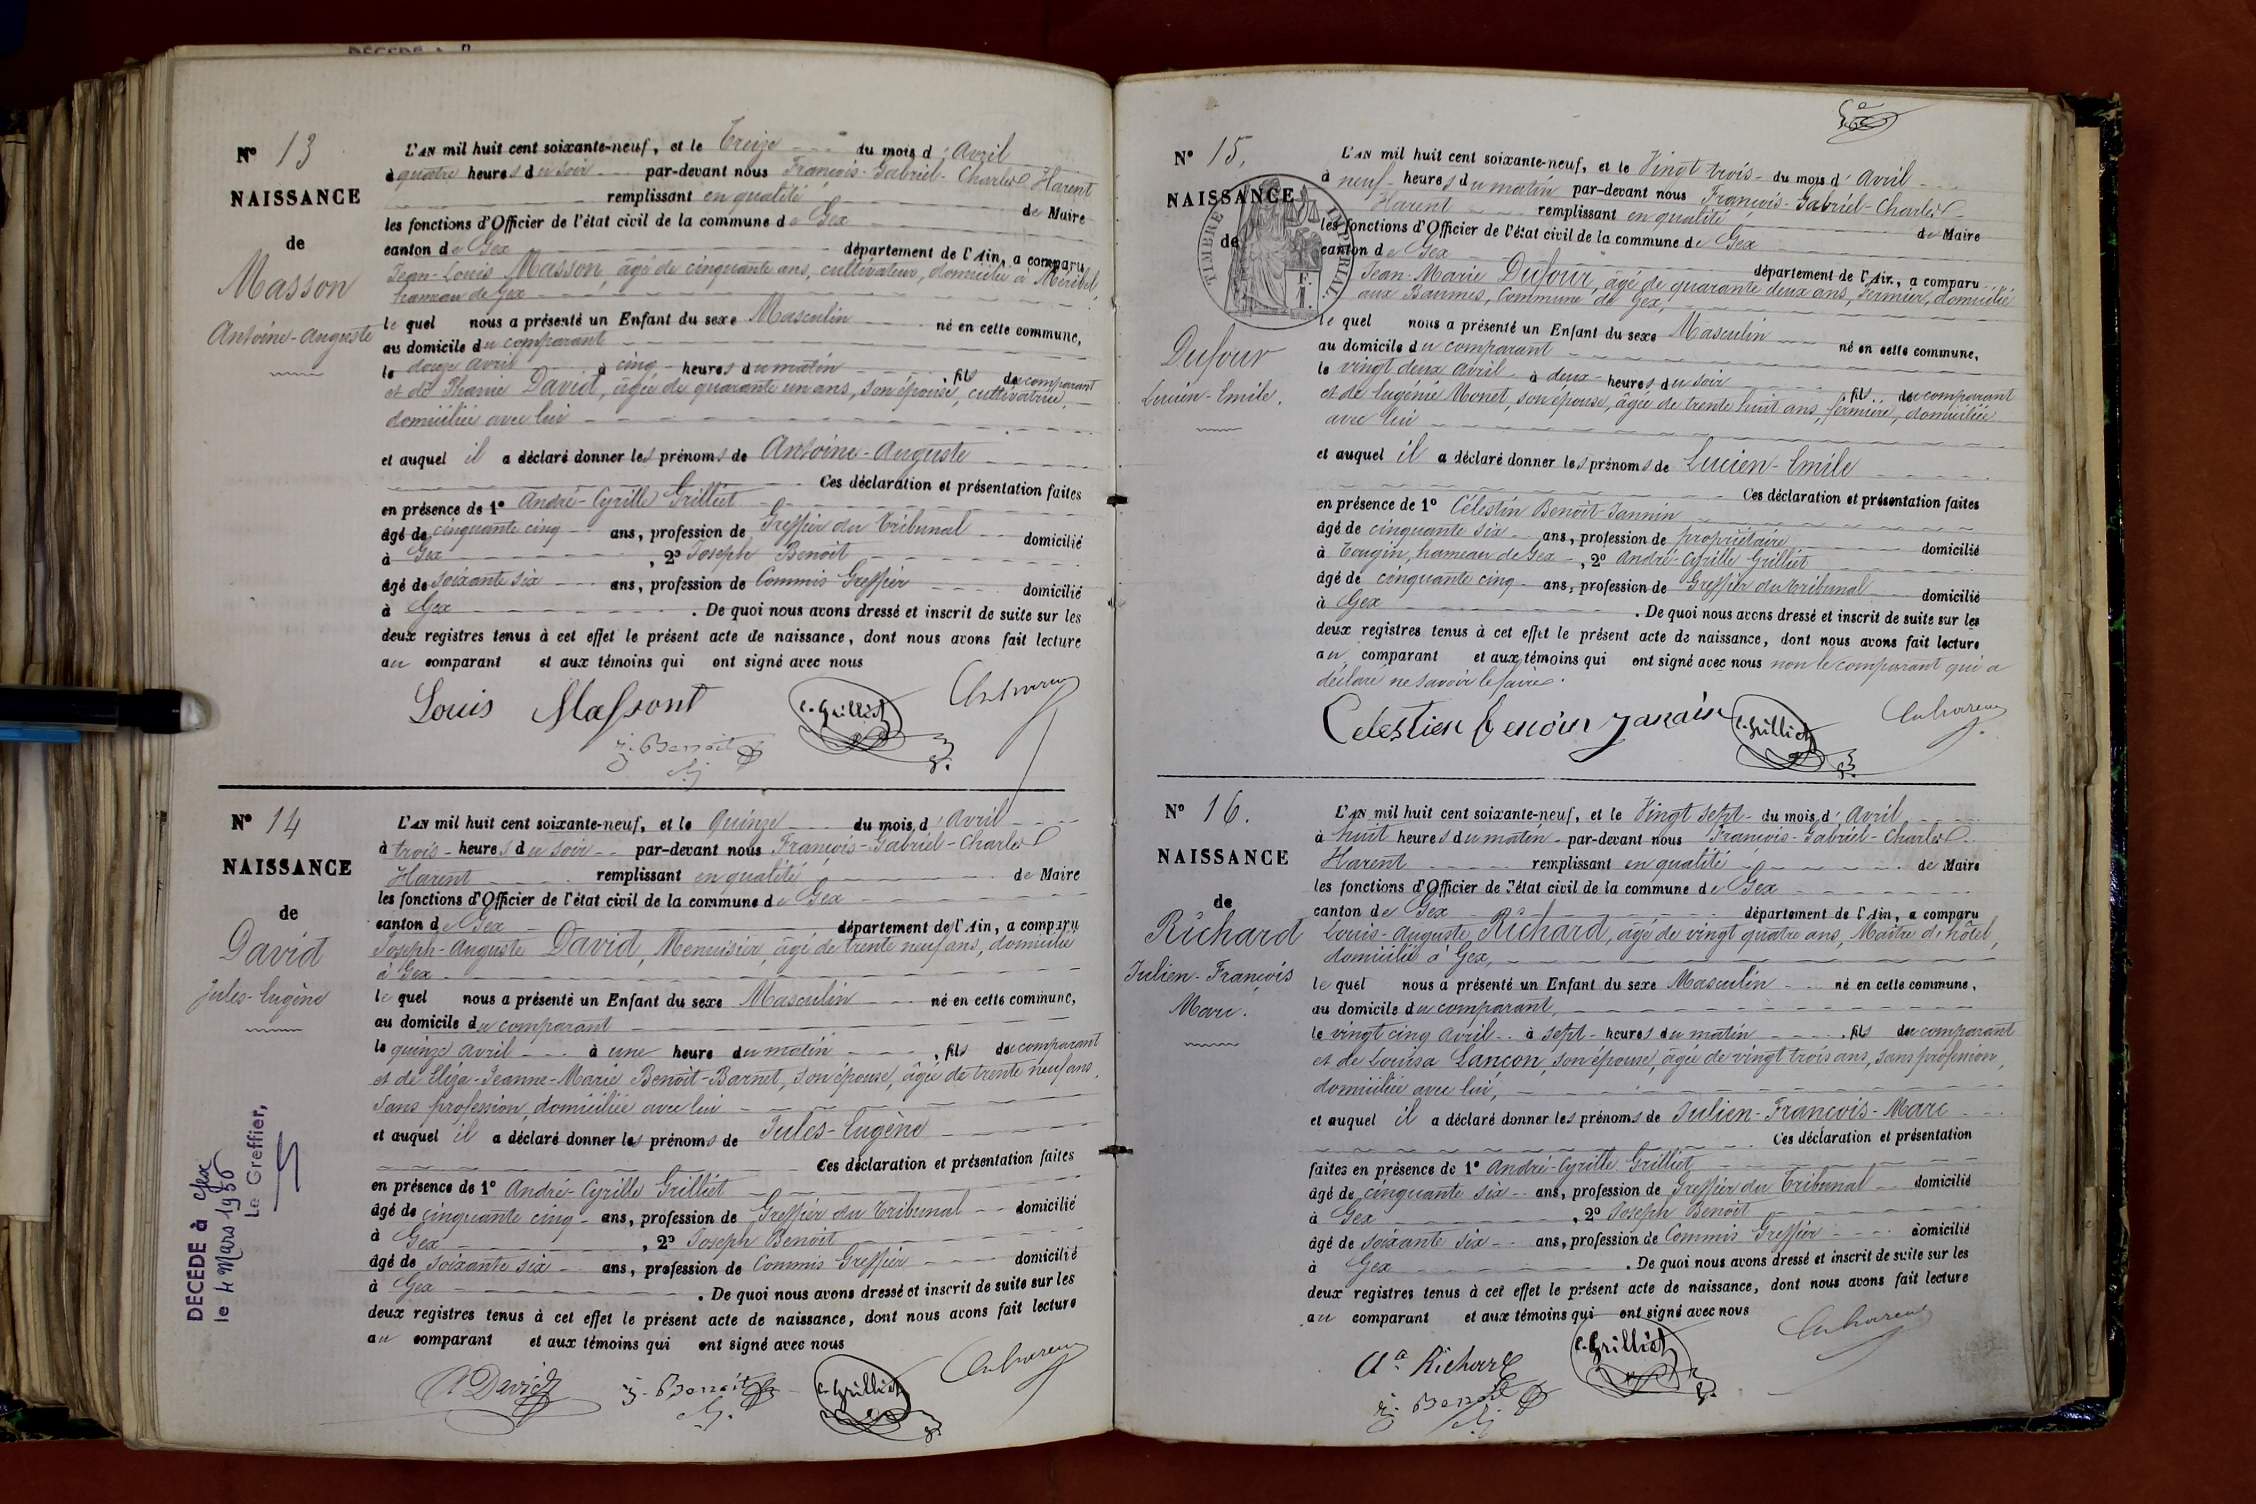 N° 13
NAISSANCE
de
Masson
Antoine-Auguste
L'AN mil huit cent soixante-neuf, et le Treize du mois d'Avril
à quatre heures du soir par-devant nous François-Gabriel-Charles Harent
remplissant en qualité de Maire
les fonctions d'Officier de l'état civil de la commune de Gex
canton de Gex département de l'Ain, a comparu
Jean-Louis Masson, âgé de cinquante ans, cultivateur, domicilié à Méribel,
hameau de Gex
le quel nous a présenté un Enfant du sexe Masculin né en cette commune,
au domicile du comparant
le douze avril à cinq heures du matin, fils du comparant
et de Pharnie David, âgée de quarante un ans, son épouse, cultivatrice,
domiciliée avec lui
et auquel il a déclaré donner les prénoms de Antoine-Auguste
Ces déclaration et présentation faites
en présence de 1° André-Cyrille Grilliet
âgé de cinquante cinq ans, profession de Greffier du Tribunal domicilié
à Gex, 2° Joseph Benoit
âgé de soixante six ans, profession de Commis Greffier domicilié
à Gex. De quoi nous avons dressé et inscrit de suite sur les
deux registres tenus à cet effet le présent acte de naissance, dont nous avons fait lecture
au comparant et aux témoins qui ont signé avec nous
Louis Massont
C. Grilliet
Ch Harent
J. Benoit
N° 14
NAISSANCE
de
David
Jules-Eugène
DÉCÉDÉ à Gex
le 4 Mars 1950
Le Greffier,
L'AN mil huit cent soixante-neuf, et le Quinze du mois d'Avril
à trois heures du soir par-devant nous François-Gabriel-Charles
Harent remplissant en qualité de Maire
les fonctions d'Officier de l'état civil de la commune de Gex
canton de Gex département de l'Ain, a comparu
Joseph-Auguste David, Menuisier, âgé de trente neuf ans, domicilié
à Gex
le quel nous a présenté un Enfant du sexe Masculin né en cette commune,
au domicile du comparant
le quinze avril à une heure du matin, fils du comparant
et de Eliza-Jeanne-Marie Benoit-Barnet, son épouse, âgée de trente neuf ans,
sans profession, domiciliée avec lui
et auquel il a déclaré donner les prénoms de Jules-Eugène
Ces déclaration et présentation faites
en présence de 1° André-Cyrille Grilliet
âgé de cinquante cinq ans, profession de Greffier du Tribunal domicilié
à Gex, 2° Joseph Benoit
âgé de soixante six ans, profession de Commis Greffier domicilié
à Gex. De quoi nous avons dressé et inscrit de suite sur les
deux registres tenus à cet effet le présent acte de naissance, dont nous avons fait lecture
au comparant et aux témoins qui ont signé avec nous
A David
J. Benoit
C. Grilliet
Ch Harent
N° 15.
NAISSANCE
de
TIMBRE IMPÉRIAL
Dufour
Lucien-Emile.
L'AN mil huit cent soixante-neuf, et le Vingt trois du mois d'Avril
à neuf heures du matin par-devant nous François-Gabriel-Charles
Harent remplissant en qualité de Maire
les fonctions d'Officier de l'état civil de la commune de Gex
canton de Gex département de l'Ain, a comparu
Jean-Marie Dufour, âgé de quarante deux ans, Fermier, domicilié
aux Baumes, Commune de Gex,
le quel nous a présenté un Enfant du sexe Masculin né en cette commune,
au domicile du comparant
le vingt deux avril à deux heures du soir, fils du comparant
et de Eugénie Monet, son épouse, âgée de trente huit ans, fermière, domiciliée
avec lui
et auquel il a déclaré donner les prénoms de Lucien-Emile
Ces déclaration et présentation faites
en présence de 1° Célestin Benoit-Jannin
âgé de cinquante six ans, profession de propriétaire domicilié
à Tougin, hameau de Gex, 2° André-Cyrille Grilliet
âgé de cinquante cinq ans, profession de Greffier du tribunal domicilié
à Gex. De quoi nous avons dressé et inscrit de suite sur les
deux registres tenus à cet effet le présent acte de naissance, dont nous avons fait lecture
au comparant et aux témoins qui ont signé avec nous non le comparant qui a
déclaré ne savoir le faire.
Celestien Benoir Janain
C. Grilliet
Ch Harent
N° 16.
NAISSANCE
de
Richard
Julien-François
Marc.
L'AN mil huit cent soixante-neuf, et le Vingt sept du mois d'Avril
à huit heures du matin par-devant nous François-Gabriel-Charles
Harent remplissant en qualité de Maire
les fonctions d'Officier de l'état civil de la commune de Gex
canton de Gex département de l'Ain, a comparu
Louis-Auguste Richard, âgé de vingt quatre ans, Maître d'hôtel,
domicilié à Gex,
le quel nous a présenté un Enfant du sexe Masculin né en cette commune,
au domicile du comparant,
le vingt cinq avril à sept heures du matin, fils du comparant
et de Louisa Lançon, son épouse, âgée de vingt trois ans, sans profession,
domiciliée avec lui,
et auquel il a déclaré donner les prénoms de Julien-François-Marc
Ces déclaration et présentation
faites en présence de 1° André-Cyrille Grilliet
âgé de cinquante six ans, profession de Greffier du Tribunal domicilié
à Gex, 2° Joseph Benoit
âgé de soixante six ans, profession de Commis Greffier domicilié
à Gex. De quoi nous avons dressé et inscrit de suite sur les
deux registres tenus à cet effet le présent acte de naissance, dont nous avons fait lecture
au comparant et aux témoins qui ont signé avec nous
Ate Richard
C. Grilliet
Ch Harent
J. Benoit